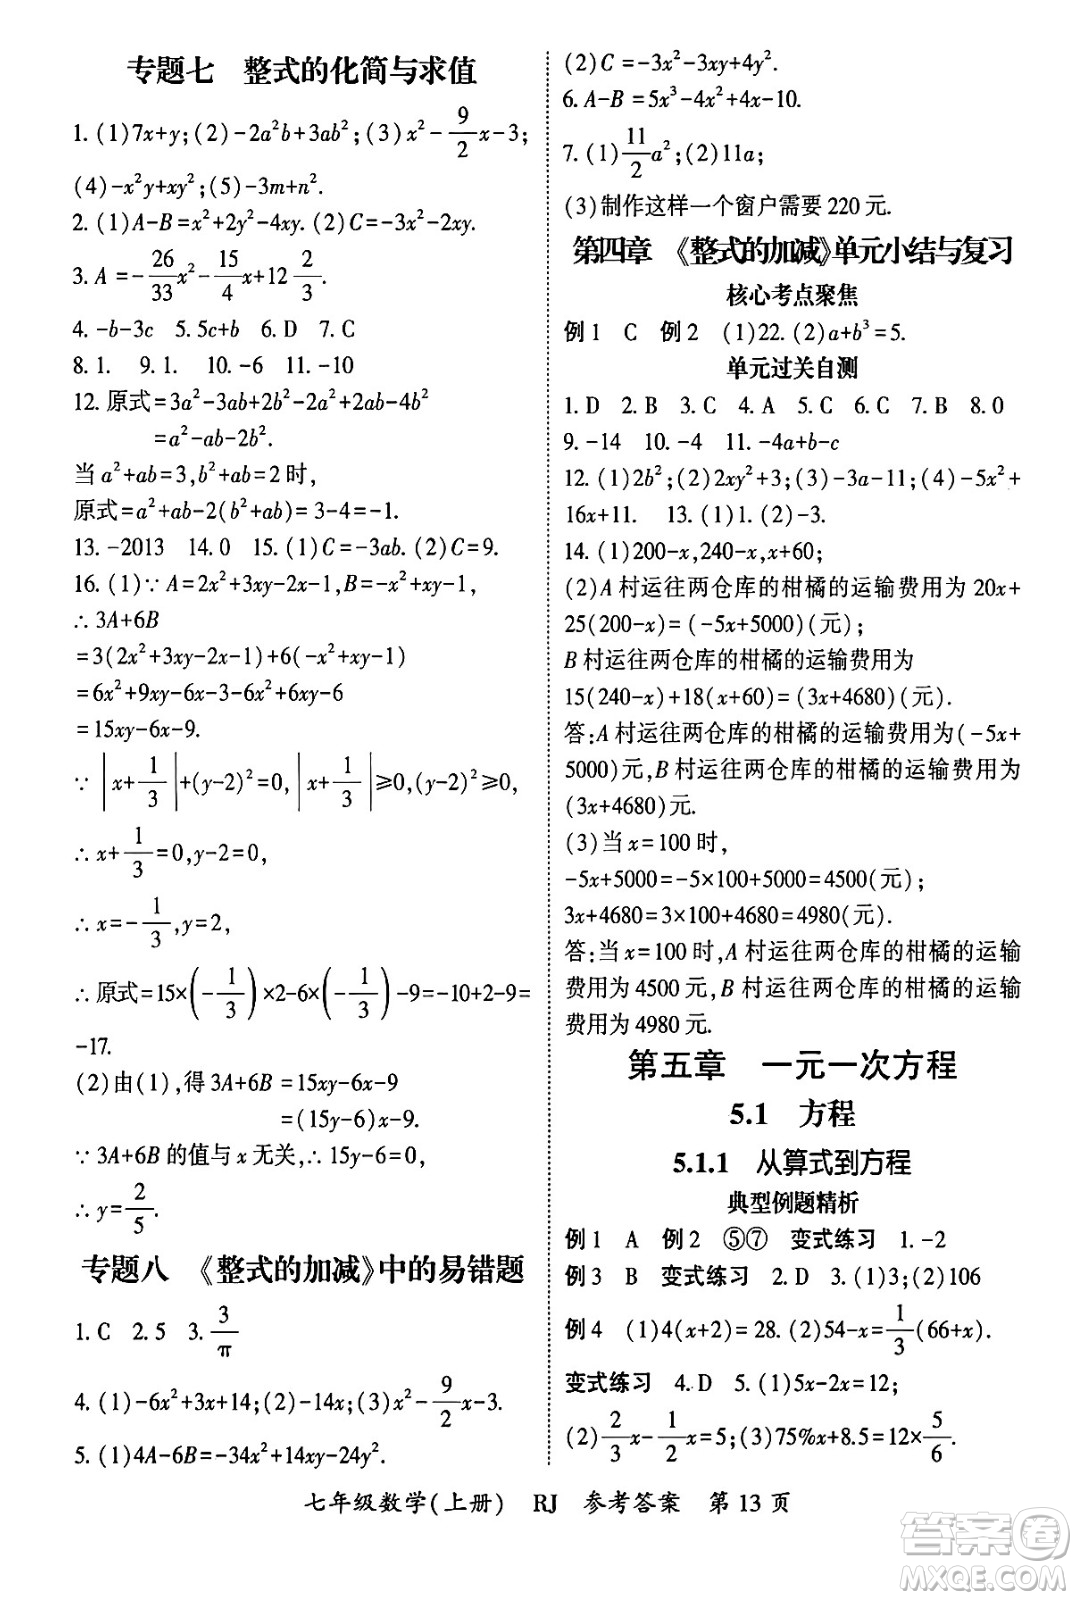 专题七 整式的化简与求值
1. (1)7x+y;(2)-2a²b+3ab²;(3)x²-9/2x-3;
(4)-x²y+xy²;(5)-3m+n².
2. (1)A-B=x²+2y²-4xy. (2)C=-3x²-2xy.
3. A=-26/33x²-15/4x+12 2/3.
4. -b-3c 5. 5c+b 6. D 7. C
8. 1. 9. 1. 10. -6 11. -10
12. 原式=3a²-3ab+2b²-2a²+2ab-4b²
=a²-ab-2b².
当a²+ab=3,b²+ab=2时,
原式=a²+ab-2(b²+ab)=3-4=-1.
13. -2013 14. 0 15. (1)C=-3ab. (2)C=9.
16. (1)∵A=2x²+3xy-2x-1,B=-x²+xy-1,
∴3A+6B
=3(2x²+3xy-2x-1)+6(-x²+xy-1)
=6x²+9xy-6x-3-6x²+6xy-6
=15xy-6x-9.
∵|x+1/3|+(y-2)²=0,|x+1/3|≥0,(y-2)²≥0,
∴x+1/3=0,y-2=0,
∴x=-1/3,y=2,
∴原式=15×(-1/3)×2-6×(-1/3)-9=-10+2-9=
-17.
(2)由(1),得3A+6B=15xy-6x-9
=(15y-6)x-9.
∵3A+6B的值与x无关,∴15y-6=0,
∴y=2/5.
专题八 《整式的加减》中的易错题
1. C 2. 5 3. 3/π
4. (1)-6x²+3x+14;(2)-14x;(3)x²-9/2x-3.
5. (1)4A-6B=-34x²+14xy-24y².
(2)C=-3x²-3xy+4y².
6. A-B=5x³-4x²+4x-10.
7. (1)11/2a²;(2)11a;
(3)制作这样一个窗户需要220元.
第四章 《整式的加减》单元小结与复习
核心考点聚焦
例1 C 例2 (1)22. (2)a+b³=5.
单元过关自测
1. D 2. B 3. C 4. A 5. C 6. C 7. B 8. 0
9. -14 10. -4 11. -4a+b-c
12. (1)2b²;(2)2xy²+3;(3)-3a-11;(4)-5x²+
16x+11. 13. (1)1. (2)-3.
14. (1)200-x,240-x,x+60;
(2)A村运往两仓库的柑橘的运输费用为20x+
25(200-x)=(-5x+5000)(元);
B村运往两仓库的柑橘的运输费用为
15(240-x)+18(x+60)=(3x+4680)(元).
答:A村运往两仓库的柑橘的运输费用为(-5x+
5000)元,B村运往两仓库的柑橘的运输费用为
(3x+4680)元.
(3)当x=100时,
-5x+5000=-5×100+5000=4500(元);
3x+4680=3×100+4680=4980(元).
答:当x=100时,A村运往两仓库的柑橘的运输
费用为4500元,B村运往两仓库的柑橘的运输
费用为4980元.
第五章 一元一次方程
5.1 方程
5.1.1 从算式到方程
典型例题精析
例1 A 例2 ⑤⑦ 变式练习 1. -2
例3 B 变式练习 2. D 3. (1)3;(2)106
例4 (1)4(x+2)=28. (2)54-x=1/3(66+x).
变式练习 4. D 5. (1)5x-2x=12;
(2)2/3x-1/2x=5;(3)75%x+8.5=12×5/6.
七年级数学(上册) RJ 参考答案 第13页
答案圈
MXQE.COM